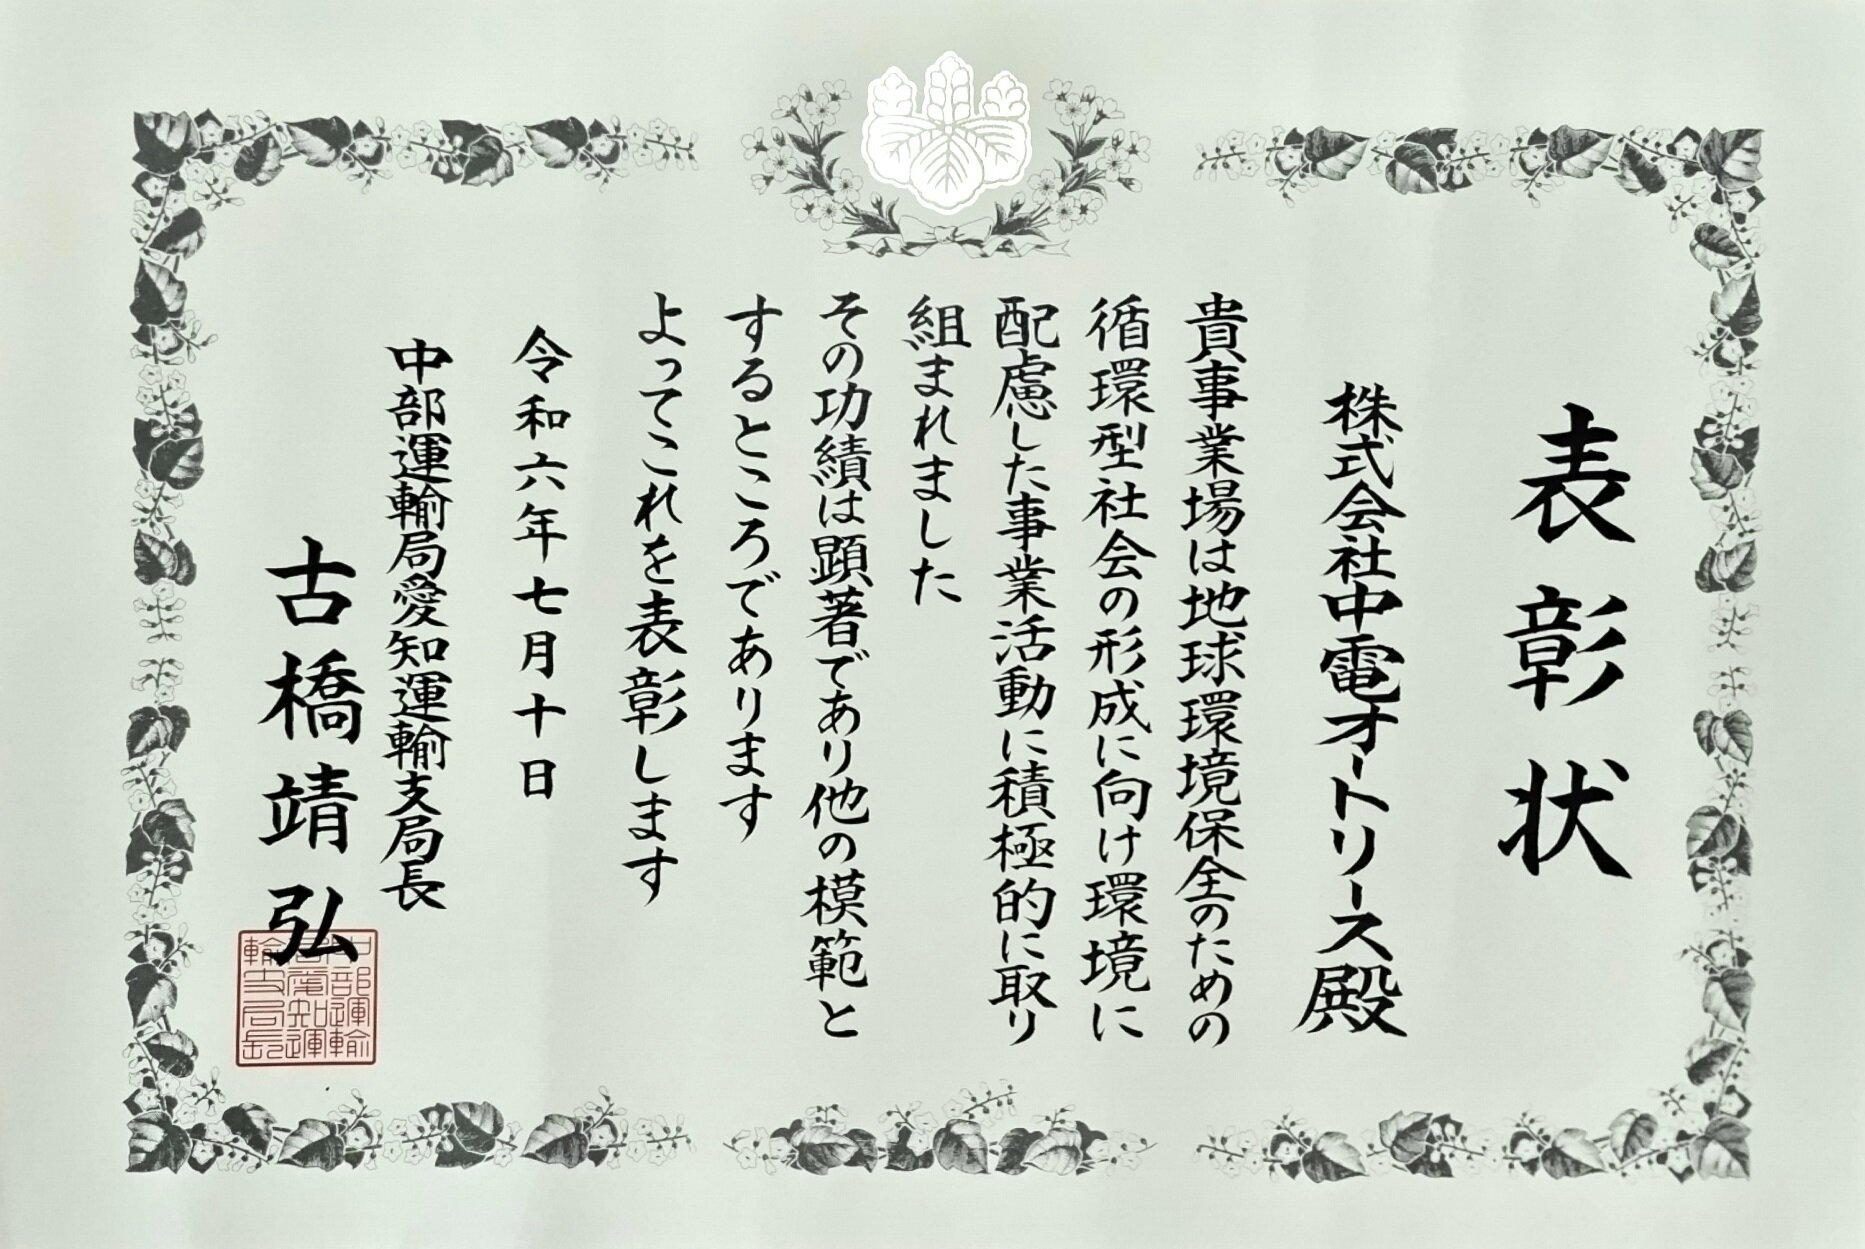 表彰状
株式会社中電オートリース殿
貴事業場は地球環境保全のための
循環型社会の形成に向け環境に
配慮した事業活動に積極的に取り
組まれました
その功績は顕著であり他の模範と
するところであります
よってこれを表彰します
令和六年七月十日
中部運輸局愛知運輸支局長
古橋靖弘
中部運輸
局愛知運
輸支局長